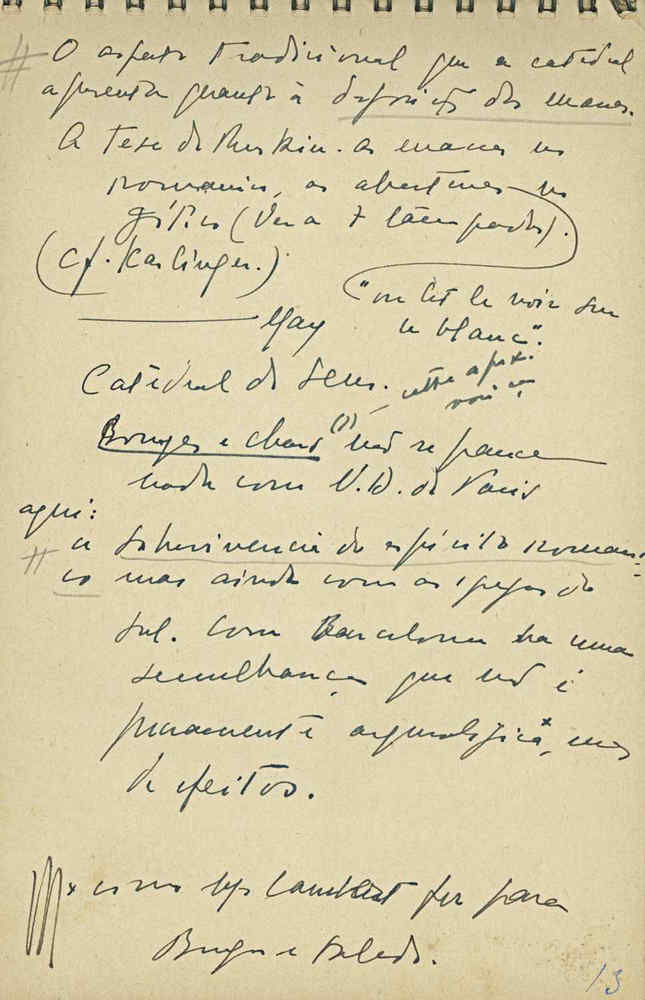 # O aspecto tradicional que a catedral
apresenta quanto à disposição das massas.
A tese de Ruskin. as massas no
romanico, as aberturas no
gótico (Ver a 7 lâmpadas).
(Cf. Karlinger.)
"on lit le noir sur
le blanc".
Catedral de Sens.
Bourges e (?) não se parece
nada com N.D. de Paris
aqui:
# a sobrevivencia do espírito romani-
co mas ainda com as igrejas do
sul. Com Barcelona ha uma
semelhança que não é
puramente arqueológica*, mas
de efeitos.
* como Lambert fez para
Burgos e Toledo.
13